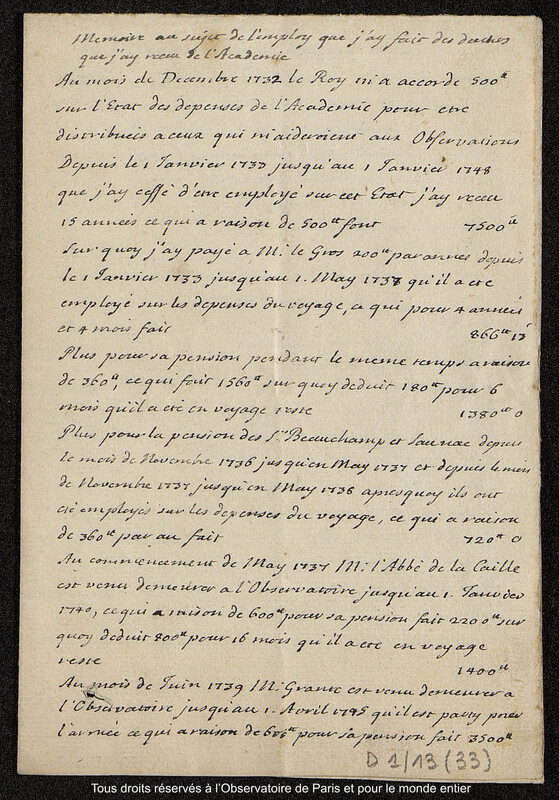 Memoire au sujet de l'employ que j'ay fait des deniers
que j'ay receu de l'Academie
Au mois de Decembre 1732 le Roy m'a accorde 500ᵗᵗ
sur l'Etat des depenses de l'Academie pour etre
distribueés a ceux qui m'aideroient aux Observations
Depuis le 1 Janvier 1733 jusqu'au 1 Janvier 1748
que j'ay cessé d'etre employé sur cet Etat j'ay receu
15 années ce qui a raison de 500ᵗᵗ font 7500ᵗᵗ
Sur quoy j'ay payé a M. le Gros 200ᵗᵗ par année depuis
le 1 Janvier 1733 jusqu'au 1. May 1737 qu'il a eté
employé sur les depenses du voyage, ce qui pour 4 années
et 4 mois fait 866ᵗᵗ 13ˢ
Plus pour sa pension pendant le meme temps a raison
de 360ᵗᵗ, ce qui fait 1560ᵗᵗ sur quoy deduit 180ᵗᵗ pour 6
mois qu'il a eté en voyage reste 1380ᵗᵗ 0
Plus pour la pension des Sʳˢ Beauchamp et Saunac depuis
le mois de Novembre 1736 jusqu'en May 1737 et depuis le mois
de Novembre 1737 jusqu'en May 1738 apres quoy ils ont
eté employés sur les depenses du voyage, ce qui a raison
de 360ᵗᵗ par an fait 720ᵗᵗ 0
Au commencement de May 1737 M. l'Abbé de la Caille
est venu demeurer a l'Observatoire jusqu'au 1. Janvier
1740, ce qui a raison de 600ᵗᵗ pour sa pension fait 2200ᵗᵗ sur
quoy deduit 800ᵗᵗ pour 16 mois qu'il a eté en voyage
reste 1400ᵗᵗ
Au mois de Juin 1739 M. Grante est venu demeurer a
l'Observatoire jusqu'au 1. Avril 1745 qu'il est party pour
l'armée ce qui a raison de 600ᵗᵗ pour sa pension fait 3500ᵗᵗ
D 1/13 (33)
Tous droits réservés à l'Observatoire de Paris et pour le monde entier